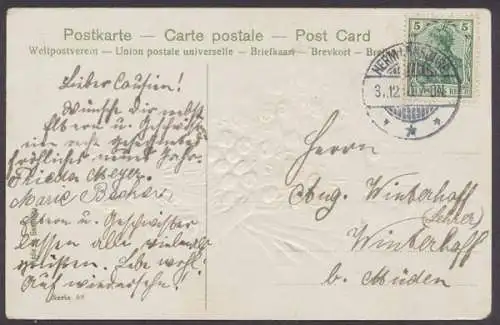 Postkarte — Carte postale — Post Card
Weltpostverein — Union postale universelle — Briefkaart — Brevkort —
5 5
DEUTSCHES REICH
3.12.
Lieber Cousien!
Wünsche Dir nebst
Eltern u. Geschwister
ein recht gesegnetes
fröhliches neues Jahr.
Frieda Meyer.
Marie Becker
Eltern u. Geschwister
lassen alle vielmals
grüßen. Lebe wohl.
Auf wiedersehn!
Serie
Herrn
Aug. Winterhoff
(Lehrer)
Winterhoff
b. Müden